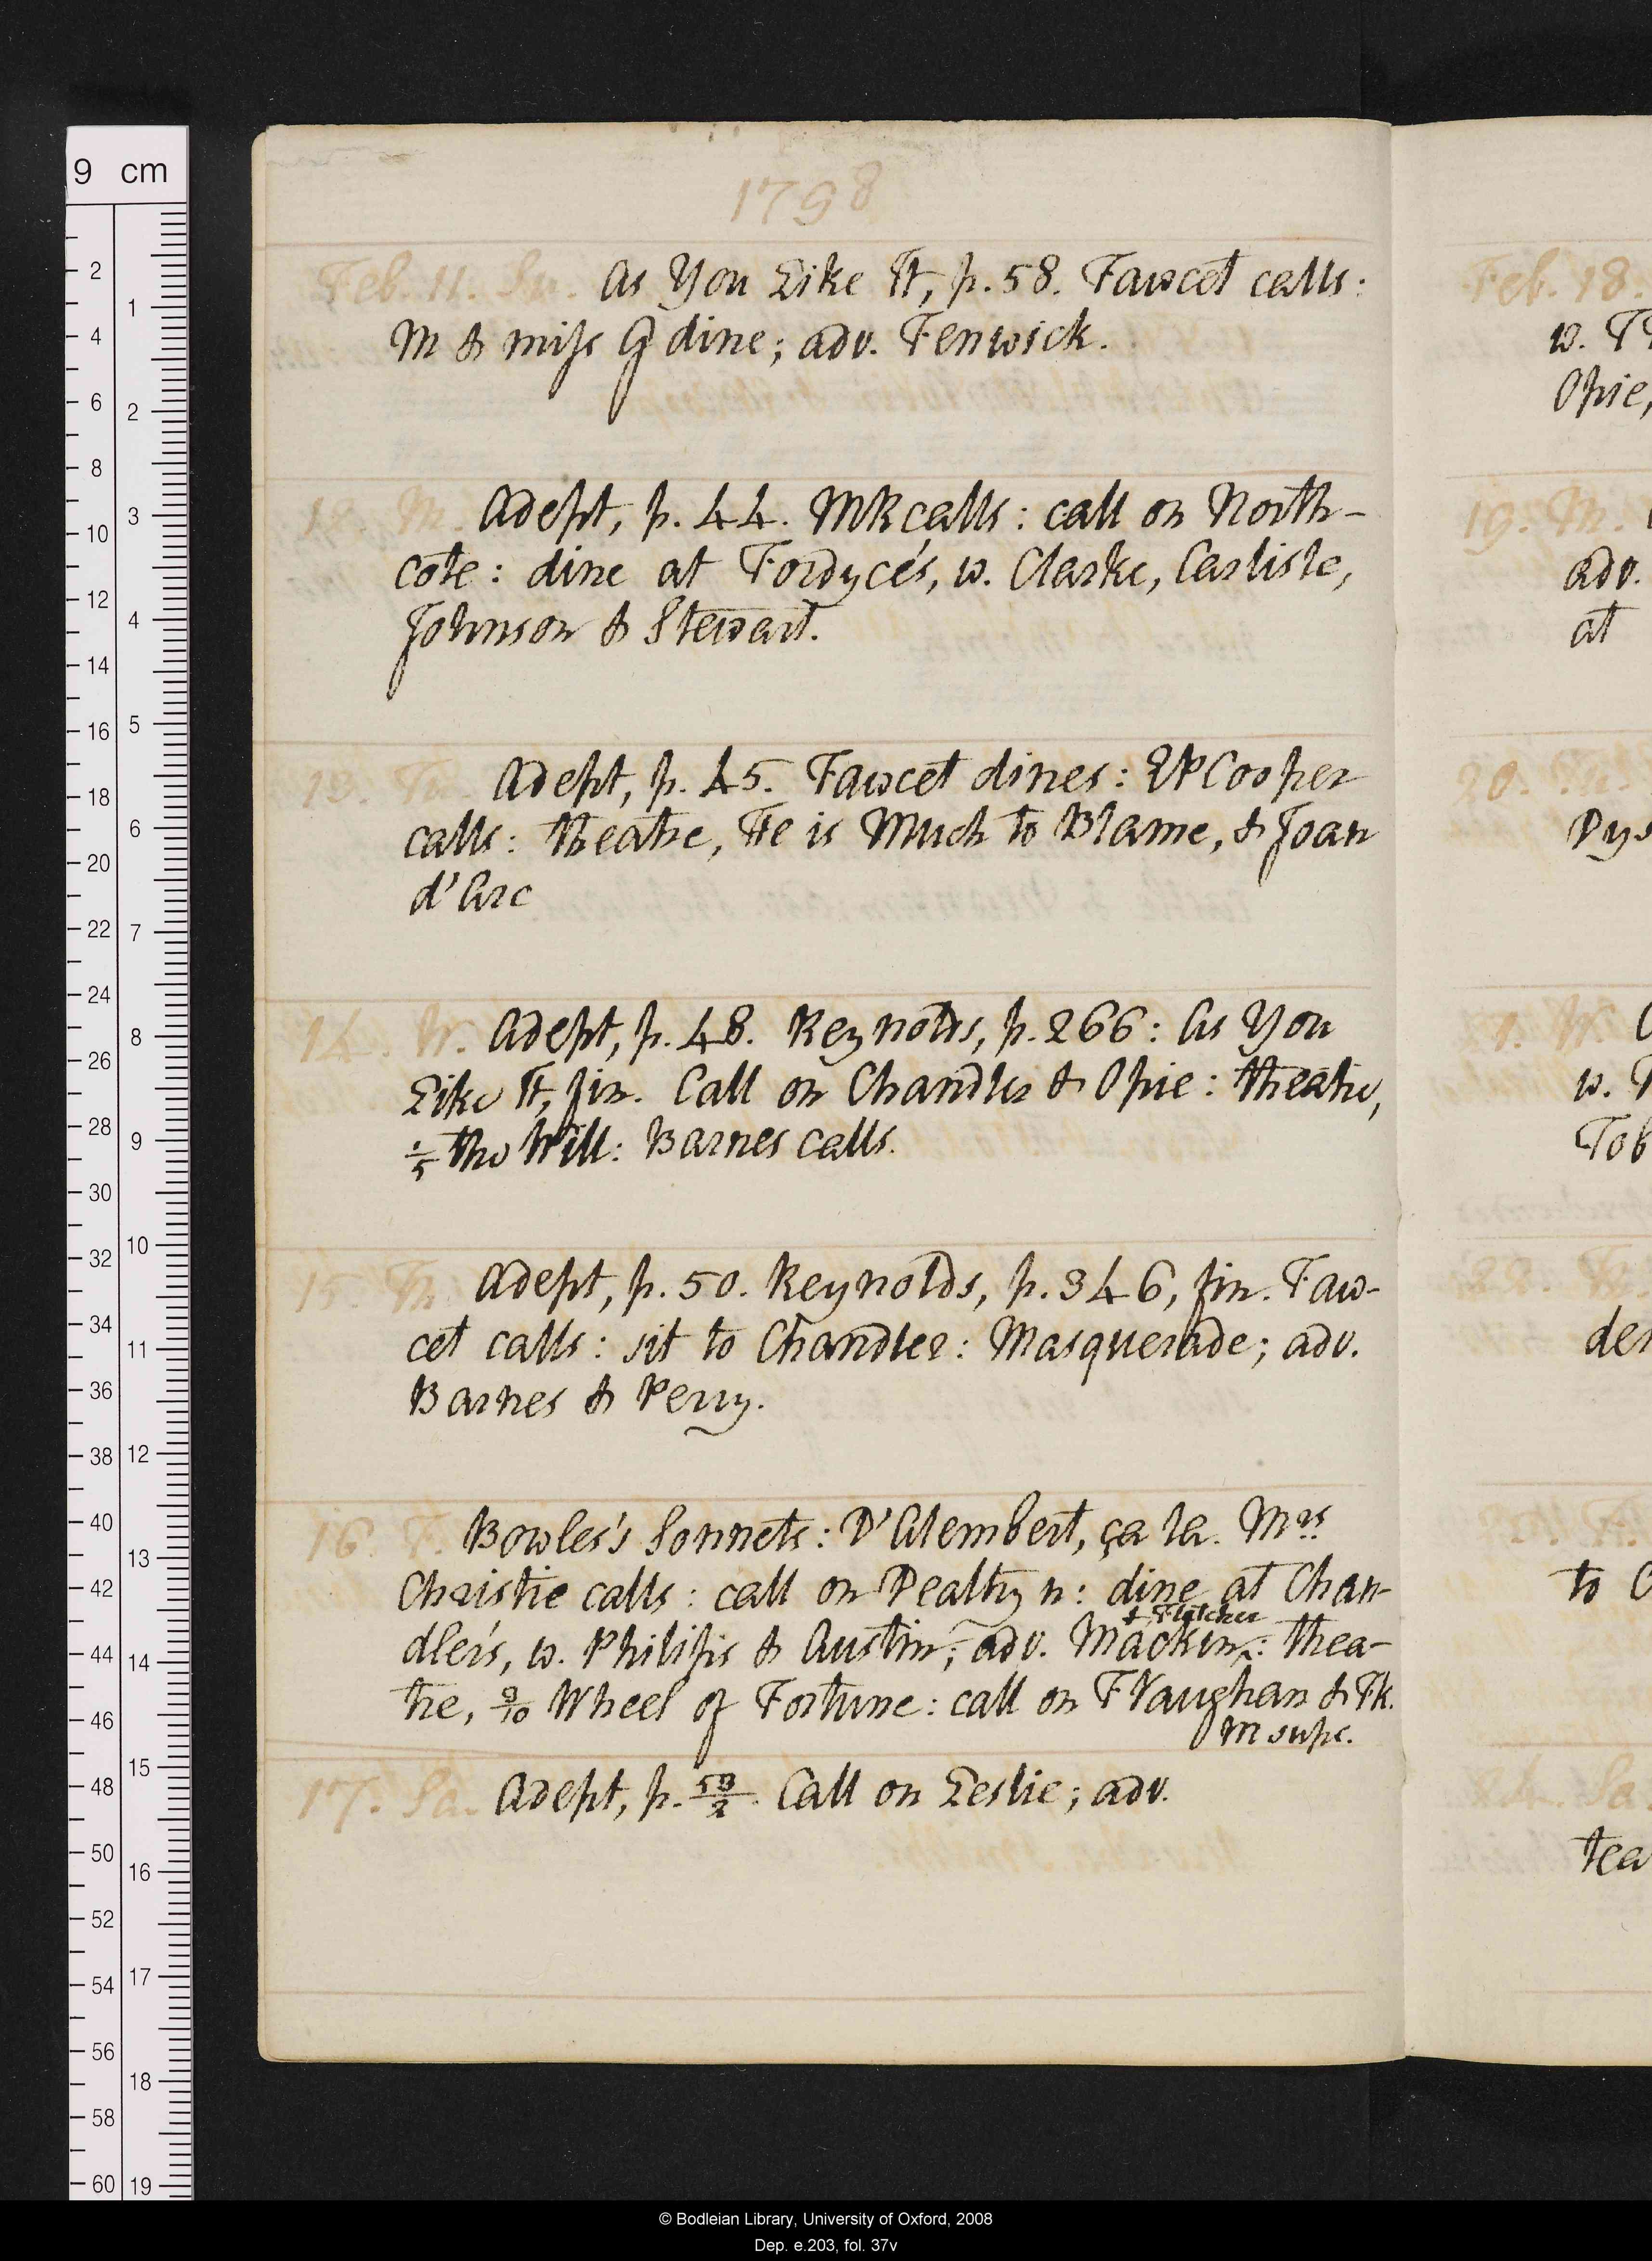 1798
Feb. 11. Su. As You Like It, p. 58. Fawcet calls:
M & miss G dine; adv. Fenwick.
12. M. Adept, p. 44. MR calls: call on North-
cote: dine at Fordyce's, w. Clarke, Carlisle,
Johnson & Stewart.
13. Tu. Adept, p. 45. Fawcet dines: EP Cooper
calls: theatre, He is Much to Blame, & Joan
d'Arc
14. W. Adept, p. 48. Reynolds, p. 266: As You
Like It, fin. Call on Chandler & Opie: theatre,
1/5 the Will: Barnes calls.
15. Th. Adept, p. 50. Reynolds, p. 346, fin. Faw-
cet calls: sit to Chandler: Masquerade; adv.
Barnes & Perry.
16. F. Bowles's Sonnets: D'Alembert, ça la. Mrs
Christie calls: call on Dealtry n: dine at Chan-
& Fletcher
dler's, w. Philips & Austin; adv. Mackin^: thea-
tre, 9/10 Wheel of Fortune: call on F Vaughan & Fk.
M sups.
17. Sa. Adept, p. 53/2. Call on Leslie; adv.
Feb. 18.
w.
Opie,
19. M.
adv.
at
20. Tu.
Dys
21. W.
w.
Tob
22. Th.
der
23. F.
to
24. Sa.
tea
9 cm
2
4
6
8
10
12
14
16
18
20
22
24
26
28
30
32
34
36
38
40
42
44
46
48
50
52
54
56
58
60
1
2
3
4
5
6
7
8
9
10
11
12
13
14
15
16
17
18
19
© Bodleian Library, University of Oxford, 2008
Dep. e.203, fol. 37v